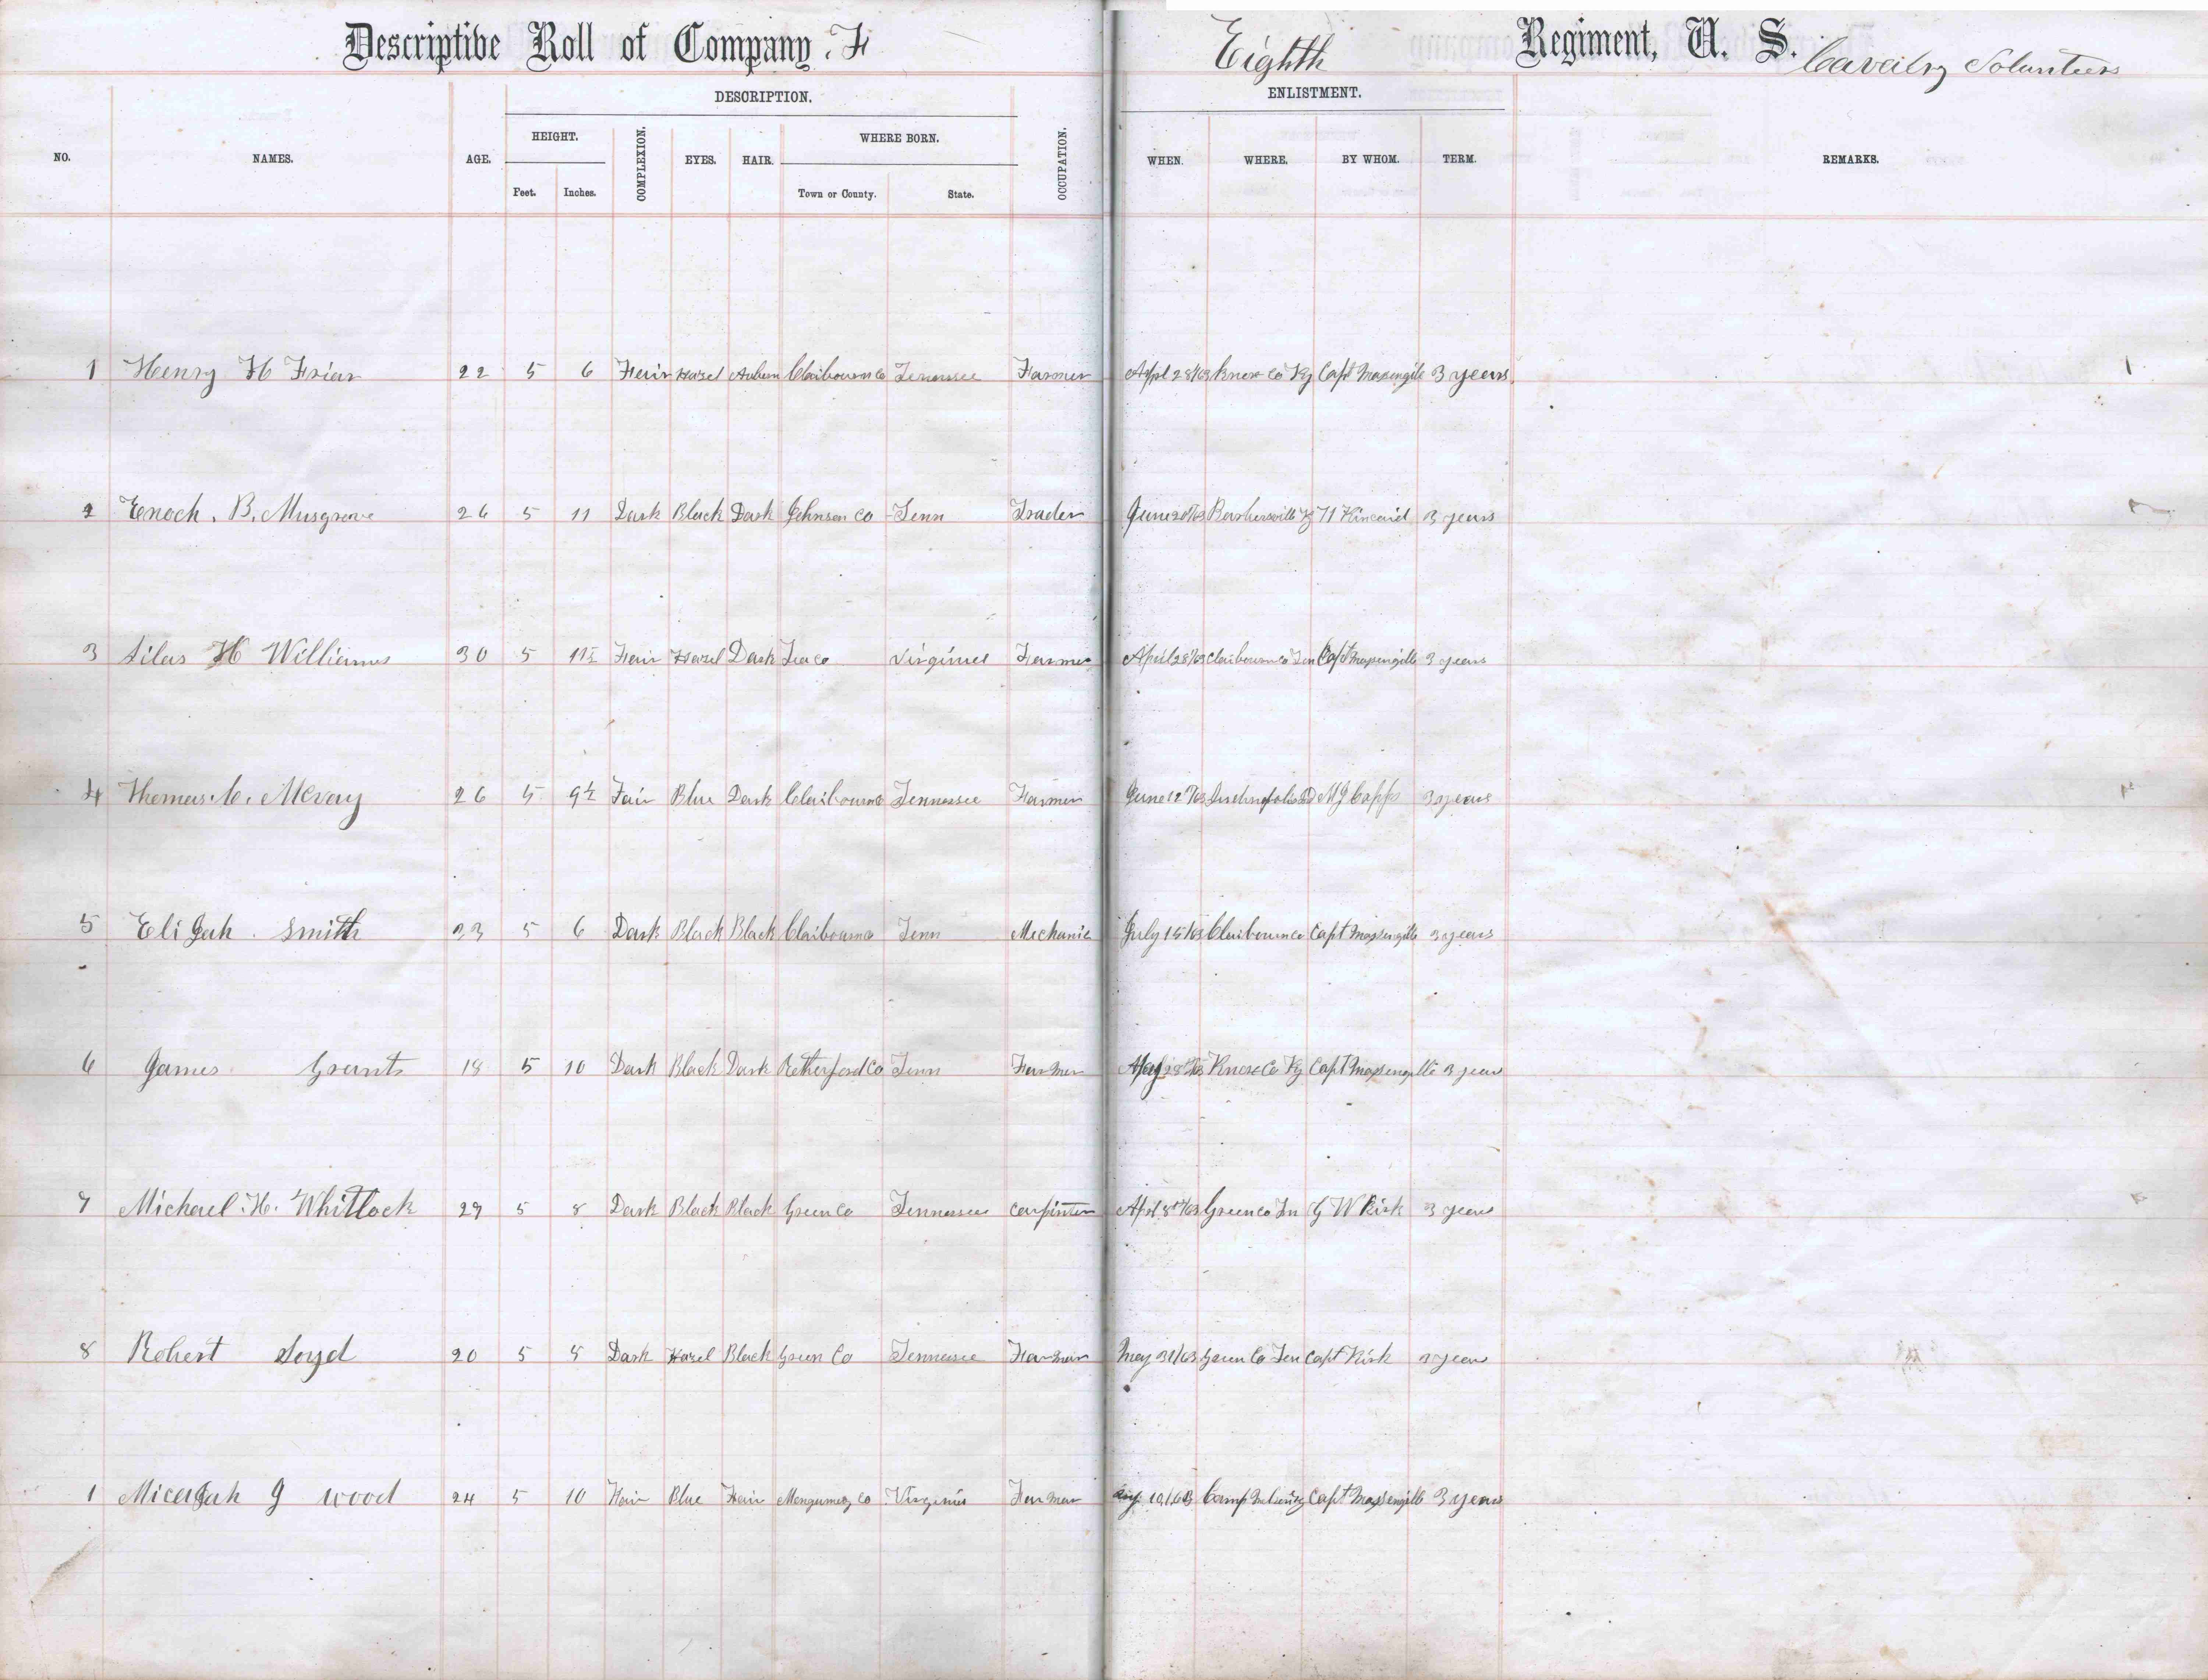 Descriptive Roll of Company F Eighth Regiment, U. S. Cavalry Volunteers
DESCRIPTION. ENLISTMENT.
NO. NAMES. AGE. HEIGHT. COMPLEXION. EYES. HAIR. WHERE BORN. OCCUPATION. WHEN. WHERE. BY WHOM. TERM. REMARKS.
Feet. Inches. Town or County. State.
1 Henry H Friar 22 5 6 Fair Hazel Auburn Claibourn Co Tennessee Farmer Apri 28/63 Knox Co Ky Capt Massengill 3 years 1
2 Enoch. B. Musgrove 26 5 11 Dark Black Dark Johnson Co Tenn Trader June 20/63 Barbersville Ky Kincaid 3 years
3 Silas H Williams 30 5 11½ Fair Hazel Dark Lea Co Virginia Farmer April 28/63 Claibourn Co Ten Capt Massengill 3 years
4 Thomas. C. Mcvay 26 5 9½ Fair Blue Dark Claibourn Co Tennessee Farmer June 12/63 M J Capps 3 years
5 EliJah. Smith 23 5 6 Dark Black Black Claibourn Co Tenn Mechanic July 15/63 Claibourn Co Capt Massengill 3 years
6 James Grants 18 5 10 Dark Black Dark Retherford Co Tenn Farmer 28/63 Knox Co Ky Capt Massengille 3 years
7 Michael. H. Whitlock 29 5 8 Dark Black Black Green Co Tennessee Carpinter Aprl 8/63 Green Co Tn G W Kirk 3 years
8 Robert Loyd 20 5 5 Dark Hazel Black Green Co Tennessee Farmer May 31/63 Green Co Ten Capt Kirk 3 years
1 MicaJah J Wood 24 5 10 Fair Blue Fair Mongumery Co Virginia Farmer Aug 10/63 Camp Nelson Ky Capt Massengill 3 years